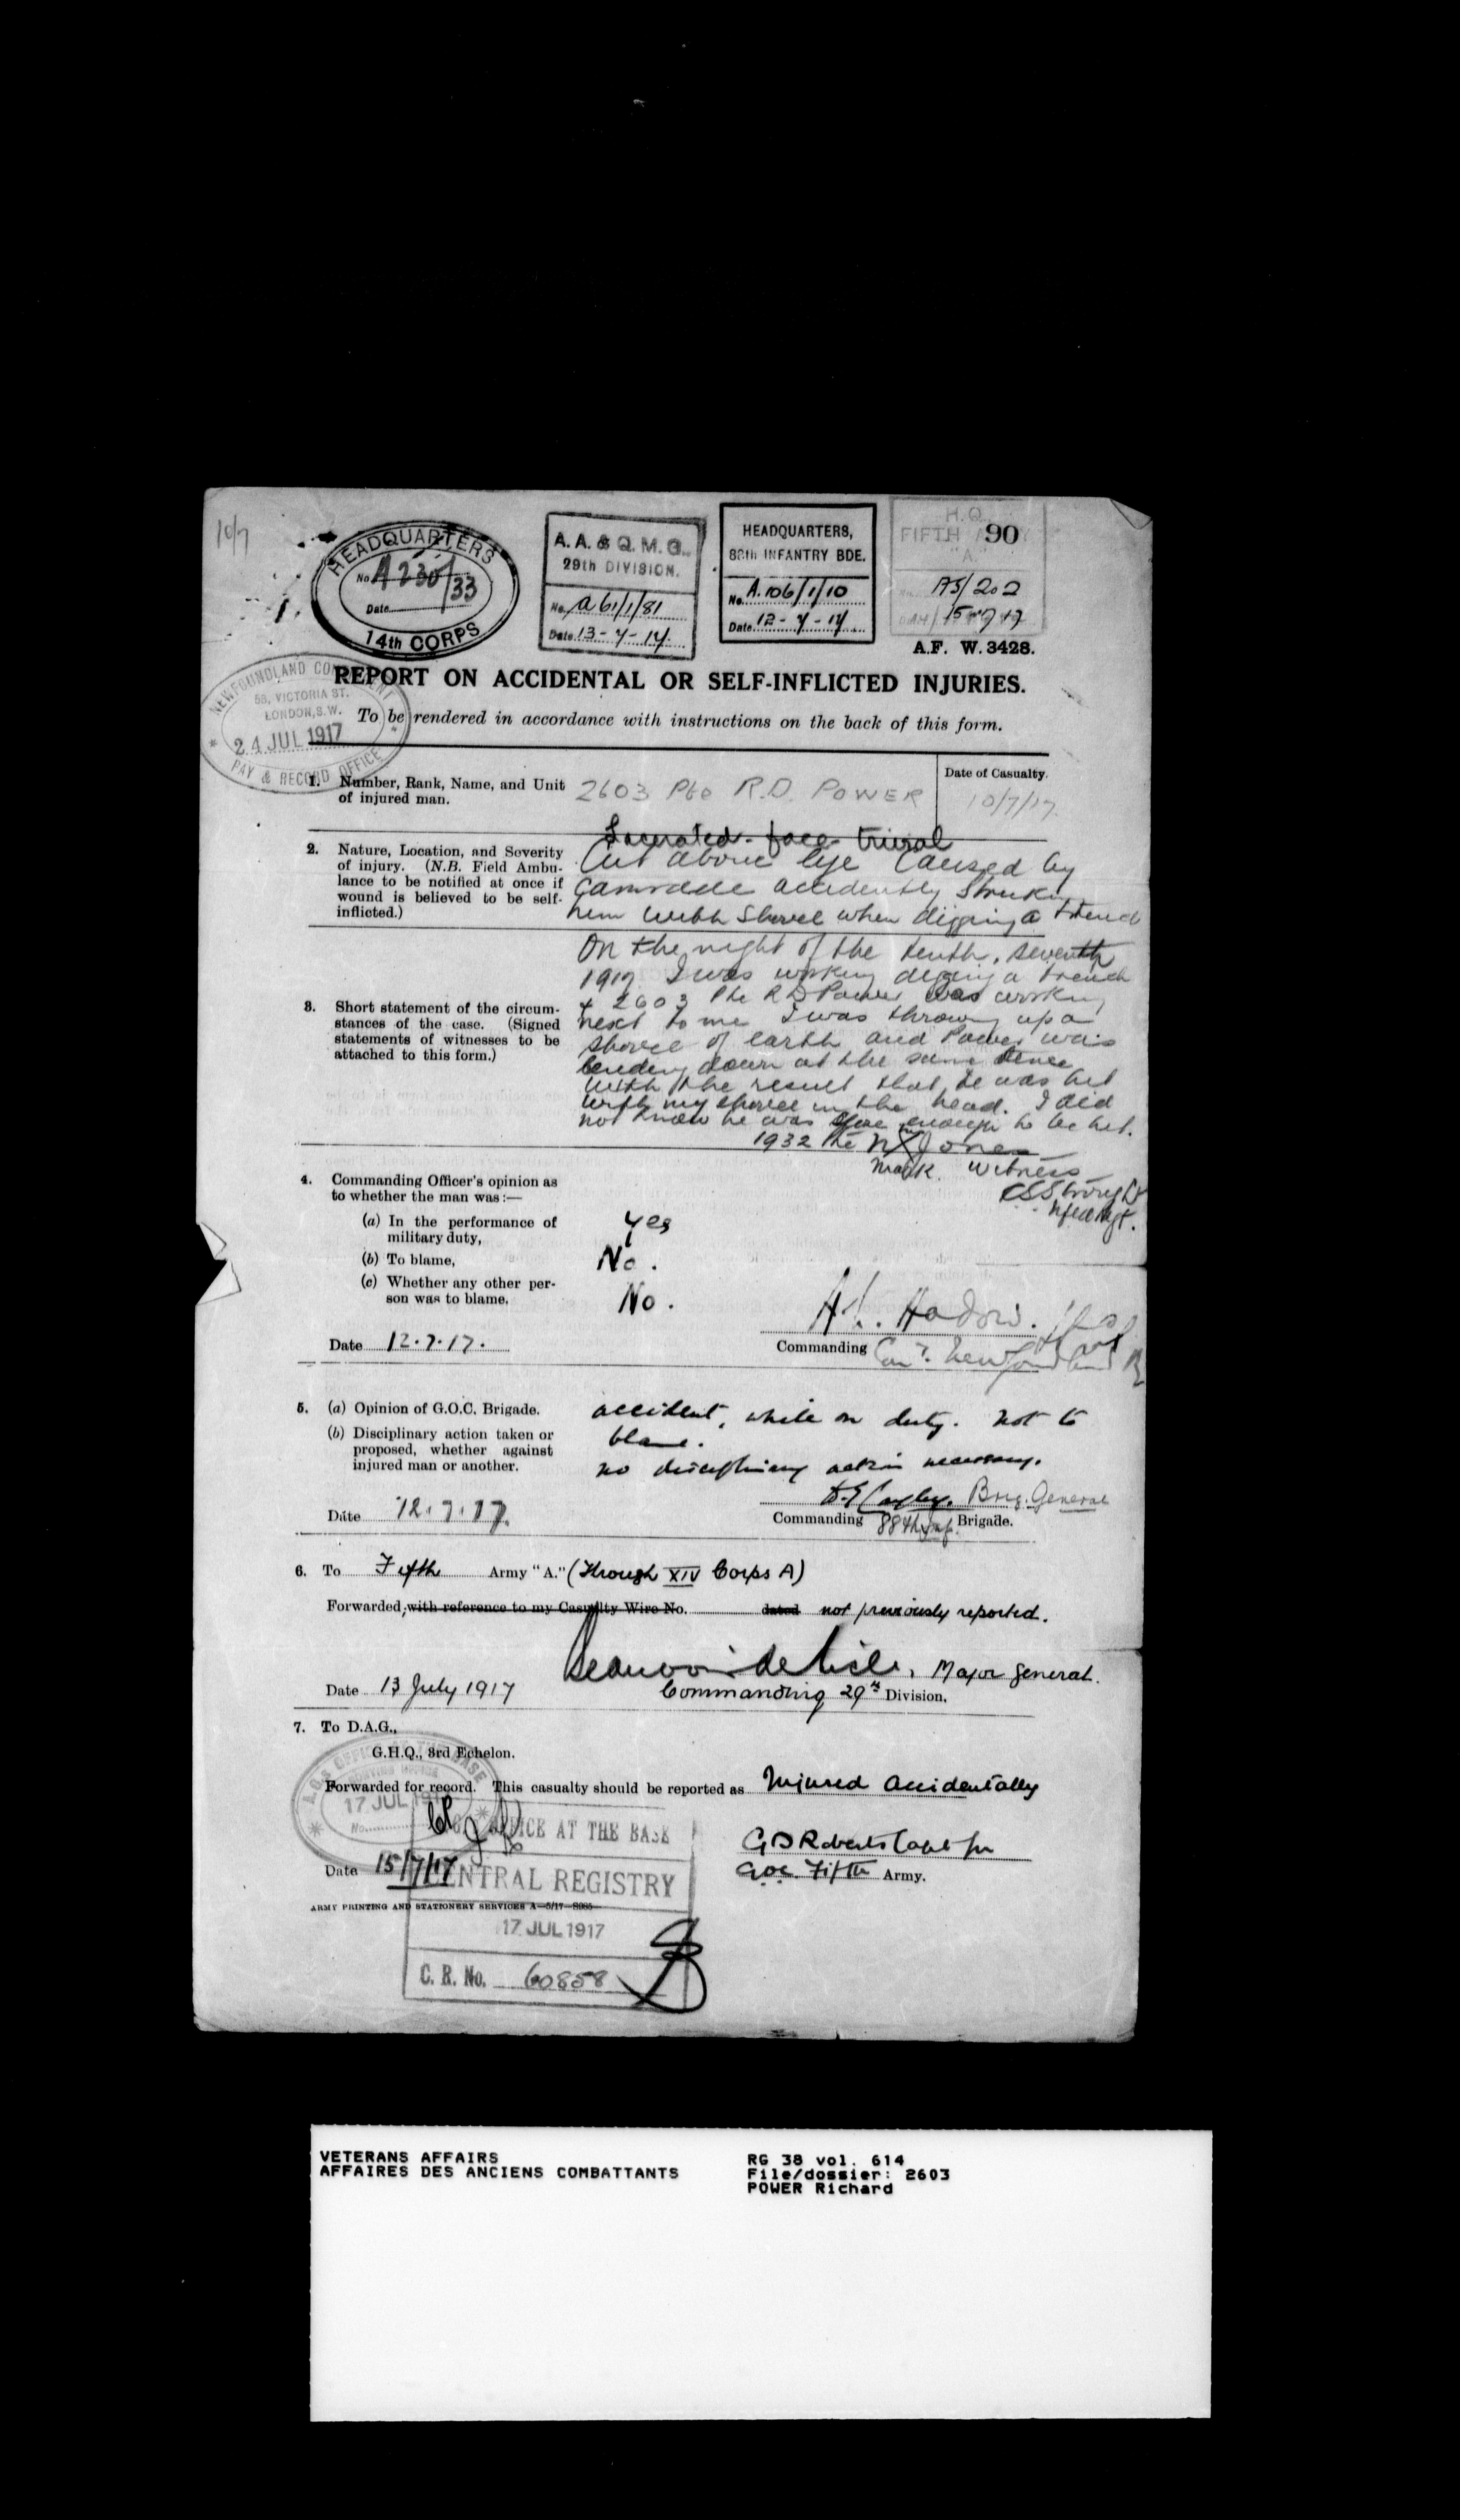 10/7
HEADQUARTERS
No. A 230/33
Date
14th CORPS
A. A. & Q. M. G.
29th DIVISION.
No. a 61/1/81
Date 13-7-17.
HEADQUARTERS,
88th INFANTRY BDE.
No. A.106/1/10
Date 12-7-17
H.Q.
FIFTH
90
"A"
A5/202
15
A.F. W.3428.
REPORT ON ACCIDENTAL OR SELF-INFLICTED INJURIES.
To be rendered in accordance with instructions on the back of this form.
NEWFOUNDLAND CONTINGENT
58, VICTORIA ST.
LONDON, S.W.
24 JUL 1917
PAY & RECORD OFFICE
1. Number, Rank, Name, and Unit
of injured man.
2603 Pte R.D. POWER
Date of Casualty.
10/7/17.
Lacerated - face - trivial
2. Nature, Location, and Severity
of injury. (N.B. Field Ambu-
lance to be notified at once if
wound is believed to be self-
inflicted.)
Cut above Eye Caused by
Comrade accidently Struking
him with Shovel when digging a trench
3. Short statement of the circum-
stances of the case. (Signed
statements of witnesses to be
attached to this form.)
On the night of the tenth, seventh
1917 I was working digging a trench
& 2603 Pte R D Power was working
next to me I was throwing up a
shovel of earth and Power was
bending down at the same time
with the result that he was hit
with my shovel in the head. I did
not know he was close enough to be hit.
1932 Pte N X Jones
mark. Witness
Nfld Rgt.
4. Commanding Officer's opinion as
to whether the man was:—
(a) In the performance of
military duty,
yes
(b) To blame,
No.
(c) Whether any other per-
son was to blame.
No.
Date 12.7.17.
A.L. Hadow.
Commanding Newfoundland R
5. (a) Opinion of G.O.C. Brigade.
accident, while on duty. Not to
blame.
(b) Disciplinary action taken or
proposed, whether against
injured man or another.
no disciplinary action necessary.
Date 12.7.17.
Brig. General
Commanding 88th Inf. Brigade.
6. To Fifth Army "A." (Through XIV Corps A)
Forwarded, with reference to my Casualty Wire No. dated not previously reported.
Beauvoir de Lisle, Major General.
Date 13 July 1917
Commanding 29th Division.
7. To D.A.G.,
G.H.Q., 3rd Echelon.
Forwarded for record. This casualty should be reported as Injured Accidentally
A.G's OFFICE AT THE BASE
17 JUL 1917
No.
OFFICE AT THE BASE
G B Roberts Capt for
Date 15/7/17
G.O.C. Fifth Army.
CENTRAL REGISTRY
ARMY PRINTING AND STATIONERY SERVICES A—5/17—
17 JUL 1917
C. R. No. 60858
VETERANS AFFAIRS
AFFAIRES DES ANCIENS COMBATTANTS
RG 38 vol. 614
File/dossier: 2603
POWER Richard